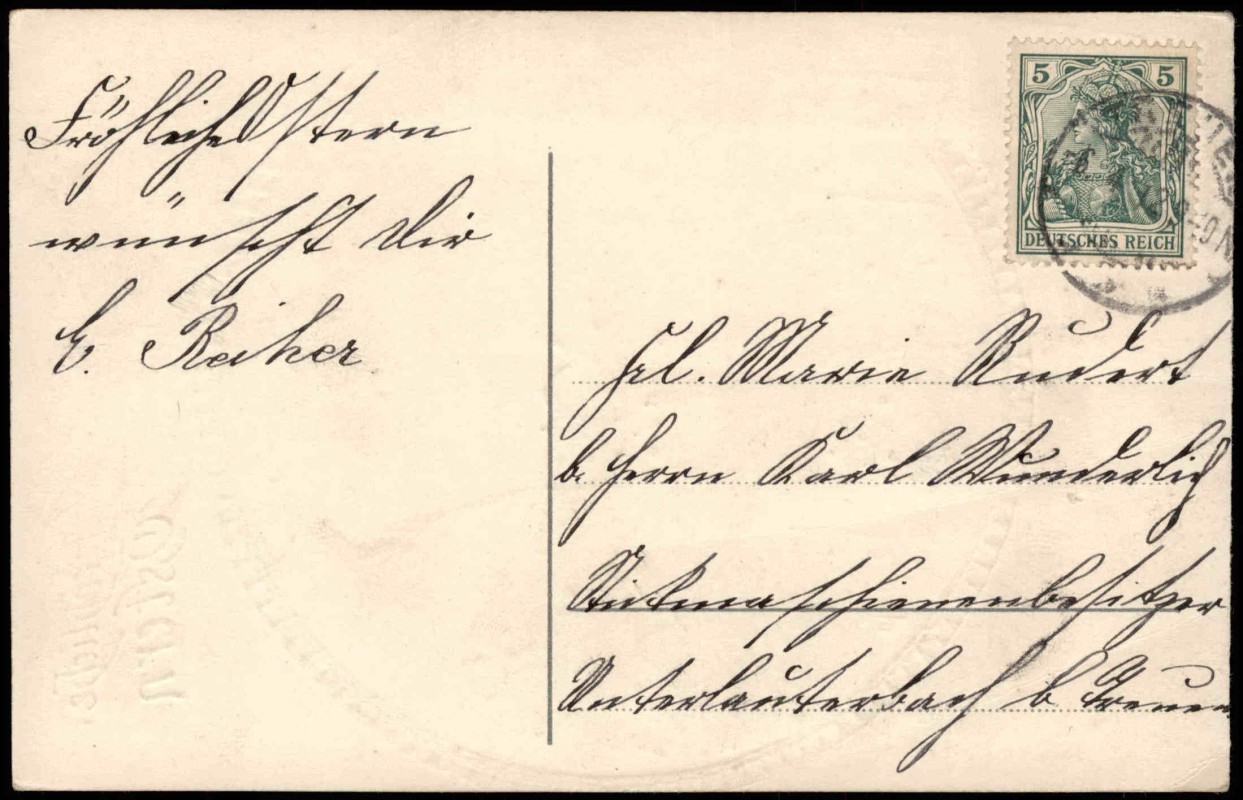 Fröhliche Ostern
wünscht Dir
E. Reiher
5 5
DEUTSCHES REICH
Frl. Marie Rudert
b. Herrn Karl Wunderlich
Stickmaschienenbesitzer
Unterlauterbach b Treuen
Ostern